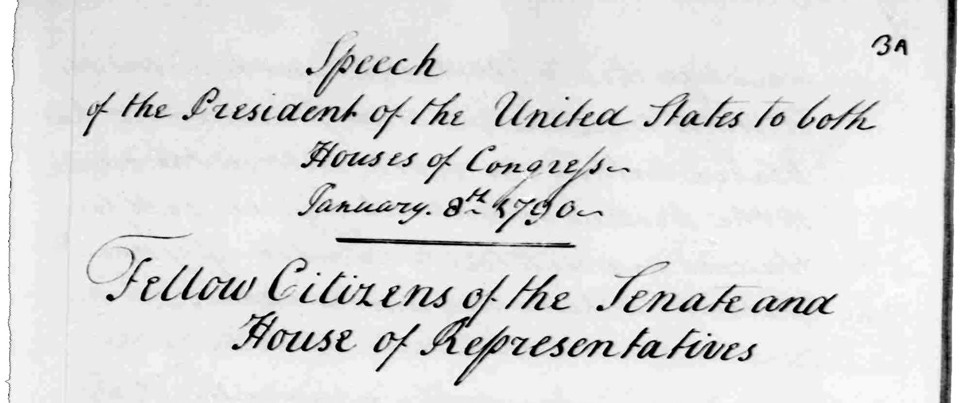 3A
Speech
of the President of the United States to both
Houses of Congreſs
January. 8th 1790
Fellow Citizens of the Senate and
House of Representatives